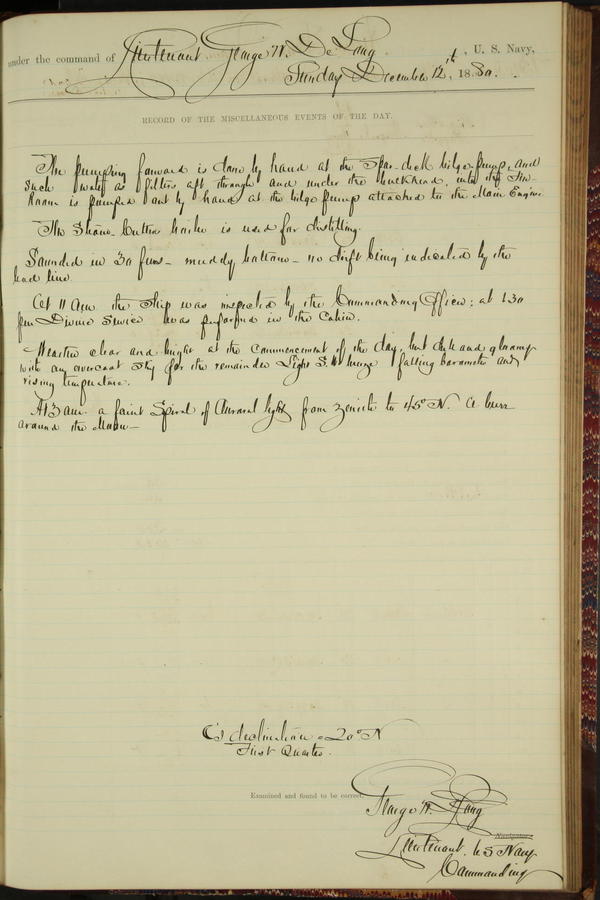 under the command of Lieutenant George W. De Long, U. S. Navy,
Sunday December 12th, 1880.
RECORD OF THE MISCELLANEOUS EVENTS OF THE DAY.
The pumping forward is done by hand at the Spar-deck bilge-pump, and
such water as filters aft through and under the bulkhead, into the Fire-
Room is pumped out by hand at the bilge pump attached to the Main Engine.
The Steam-Cutter boiler is used for distilling.
Sounded in 30 fms - muddy bottom - no drift being indicated by the
lead line.
At 11 am the Ship was inspected by the Commanding Officer; at 1.30
pm Divine Service was performed in the Cabin.
Weather clear and bright at the commencement of the day, but dull and gloomy
with an overcast sky for the remainder Light S.W. breeze falling barometer and
rising temperature.
At 3 am. a faint Spiral of Auroral light from zenith to 45° N. A burr
around the Moon -
declination - 20° N
First Quarter.
Examined and found to be correct,
George W. De Long
Navigator.
Lieutenant, U S Navy
Commanding